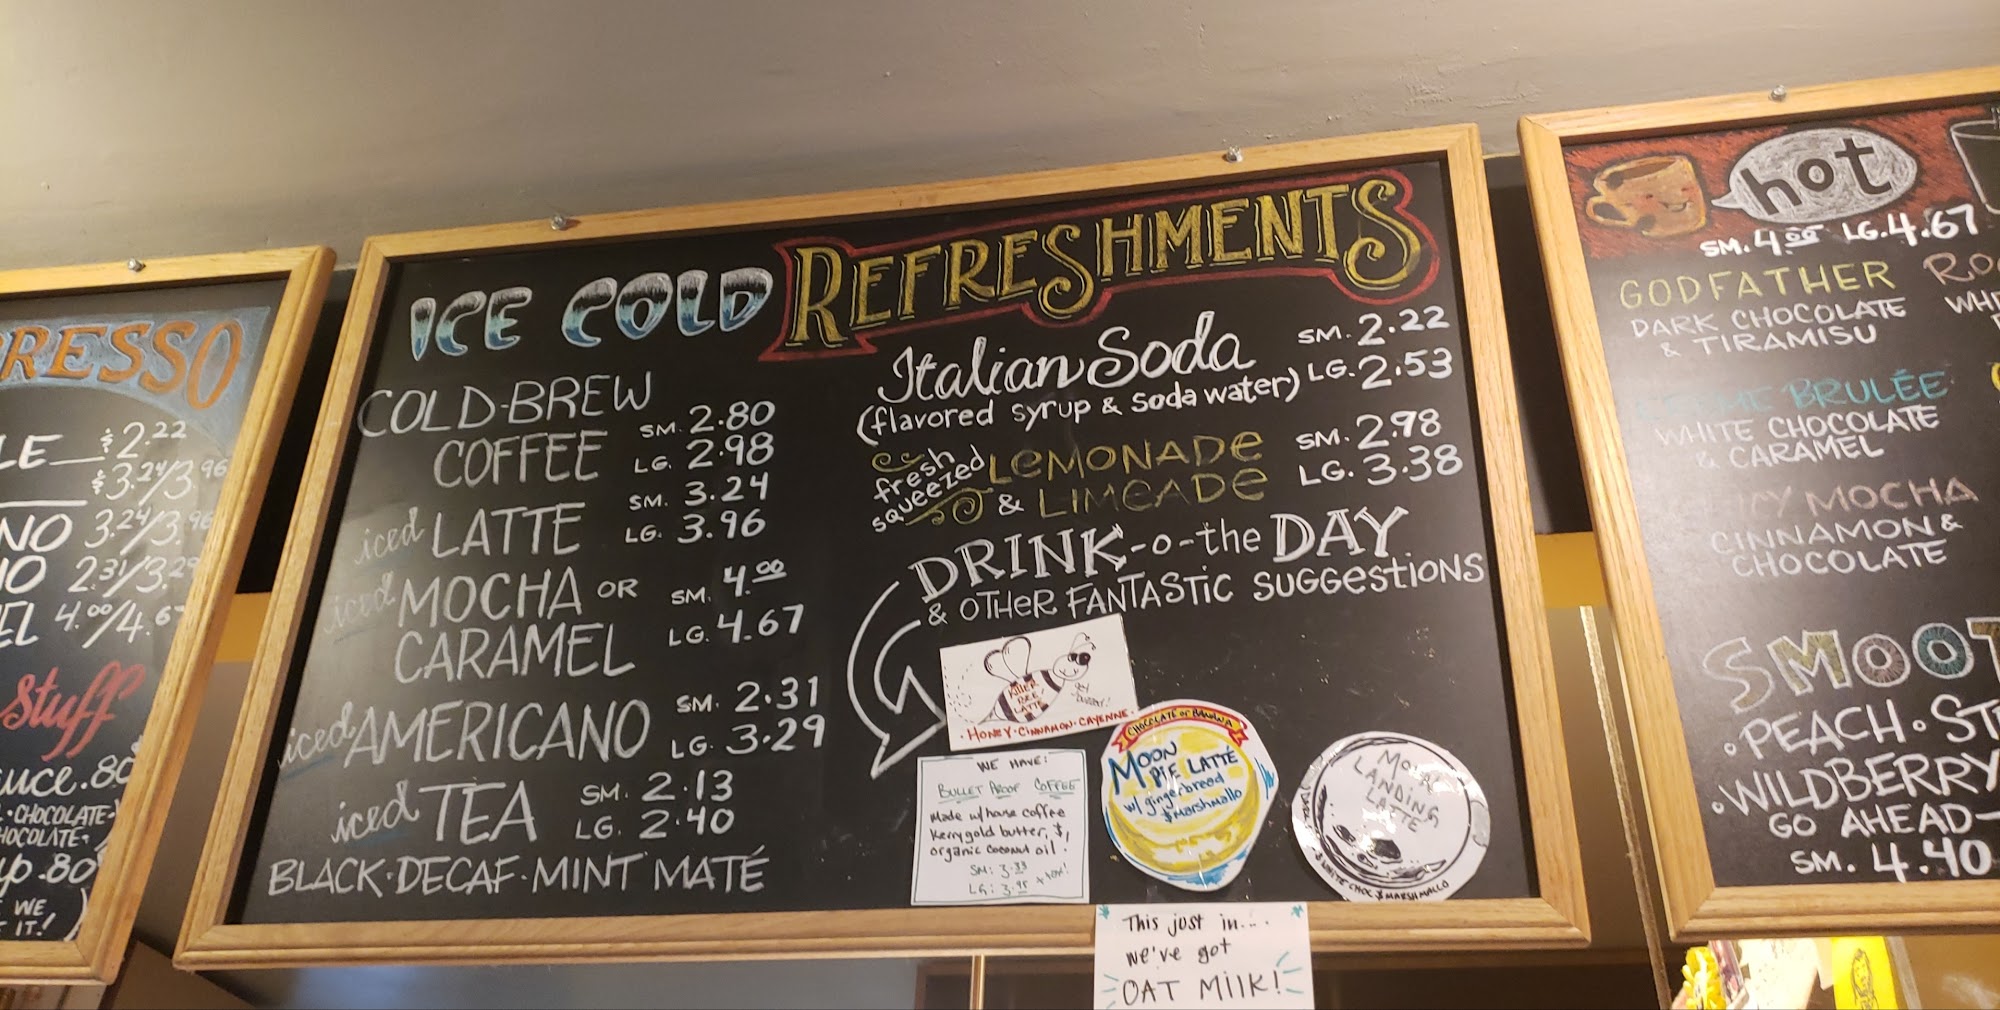 RESSO
LE $2.22
$3.24/3.96
NO 3.24/3.96
IO 2.31/3.29
EL 4.00/4.67
Stuff
uce .80
•CHOCOLATE•
HOCOLATE•
up .80
WE
IT!)
ICE COLD REFRESHMENTS
COLD-BREW
COFFEE SM. 2.80
LG. 2.98
iced LATTE SM. 3.24
LG. 3.96
iced MOCHA OR
CARAMEL SM. 4.00
LG. 4.67
iced AMERICANO SM. 2.31
LG. 3.29
iced TEA SM. 2.13
LG. 2.40
BLACK•DECAF•MINT MATÉ
Italian Soda SM. 2.22
(flavored syrup & soda water) LG. 2.53
fresh
squeezed
LEMONADE SM. 2.98
& LIMEADE LG. 3.38
DRINK-o-the DAY
& OTHER FANTASTIC SUGGESTIONS
KILLER
BEE
LATTE
•HONEY•CINNAMON•CAYENNE•
WE HAVE:
BULLET PROOF COFFEE
Made w/house coffee
Kerrygold butter, &
organic coconut oil!
SM: 3.33
LG: 3.95
CHOCOLATE or BANANA
MOON
PIE LATTÉ
w/ gingerbread
& marshmallo
MOON
LANDING
LATTE
& WHITE CHOC & MARSHMALLO
This just in....
we've got
OAT MILK!
hot
SM. 4.00 LG. 4.67
GODFATHER
DARK CHOCOLATE
& TIRAMISU
BRULÉE
WHITE CHOCOLATE
& CARAMEL
MOCHA
CINNAMON &
CHOCOLATE
SMOOT
•PEACH•ST
•WILDBERRY
GO AHEAD—
SM. 4.40